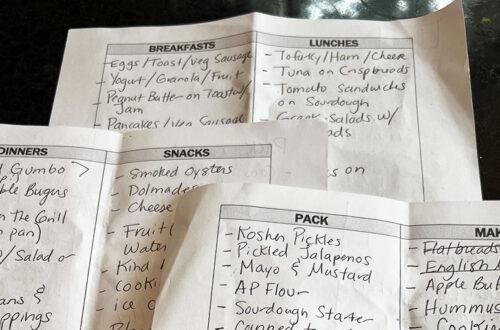 BREAKFASTS
- Eggs/Toast/Veg Sausage
- Yogurt/Granola/Fruit
- Peanut Butter on Toast w/
Jam
- Pancakes/Veg Sausage
LUNCHES
- Tofurky/Ham/Cheese
- Tuna on Crispbreads
- Tomato Sandwiches
on Sourdough
- Greek Salads w/
on
DINNERS
Gumbo >
Burgers
on the Grill
pan)
w/ Salad or
&
SNACKS
- Smoked Oysters
- Dolmades
- Cheese
- Fruit (
Water
- Kind
- Cooki
- ice
PACK
- Kosher Pickles
- Pickled Jalapenos
- Mayo & Mustard
- AP Flour
- Sourdough Starter
- Canned
MAK
- Flatbreads
- English
- Apple But
- Hummu
- Cookin